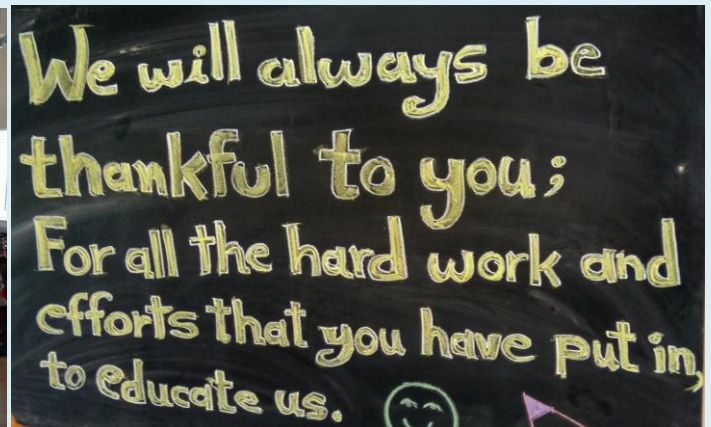 We will always be
thankful to you;
For all the hard work and
efforts that you have put in,
to educate us.